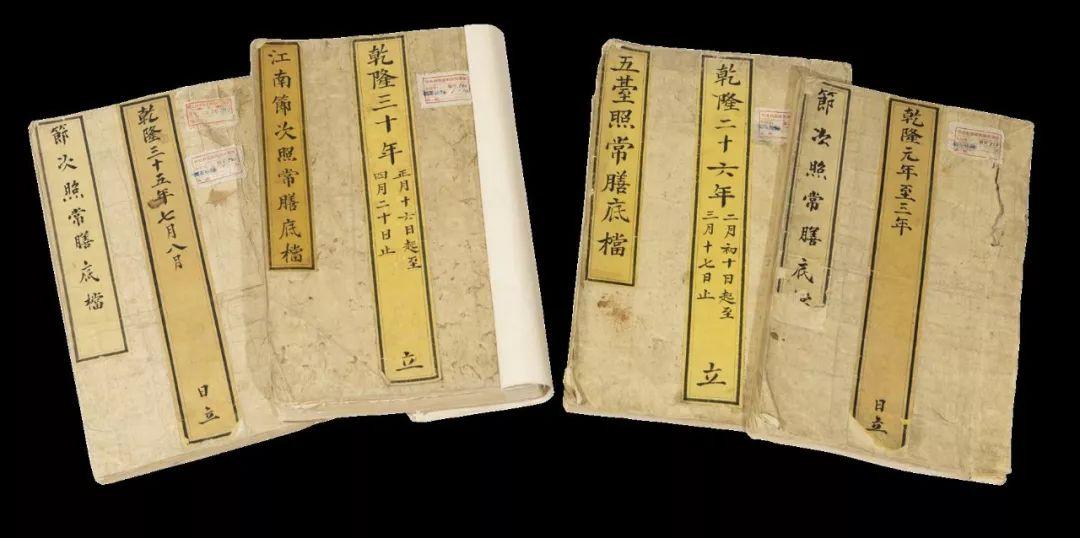 節次照常膳底檔
乾隆三十五年七月八月
日立
江南節次照常膳底檔
乾隆三十年
正月十六日起至
四月二十日止
立
五臺照常膳底檔
乾隆二十六年
二月初十日起至
三月十七日止
立
節次照常膳底
乾隆元年至三年
日立